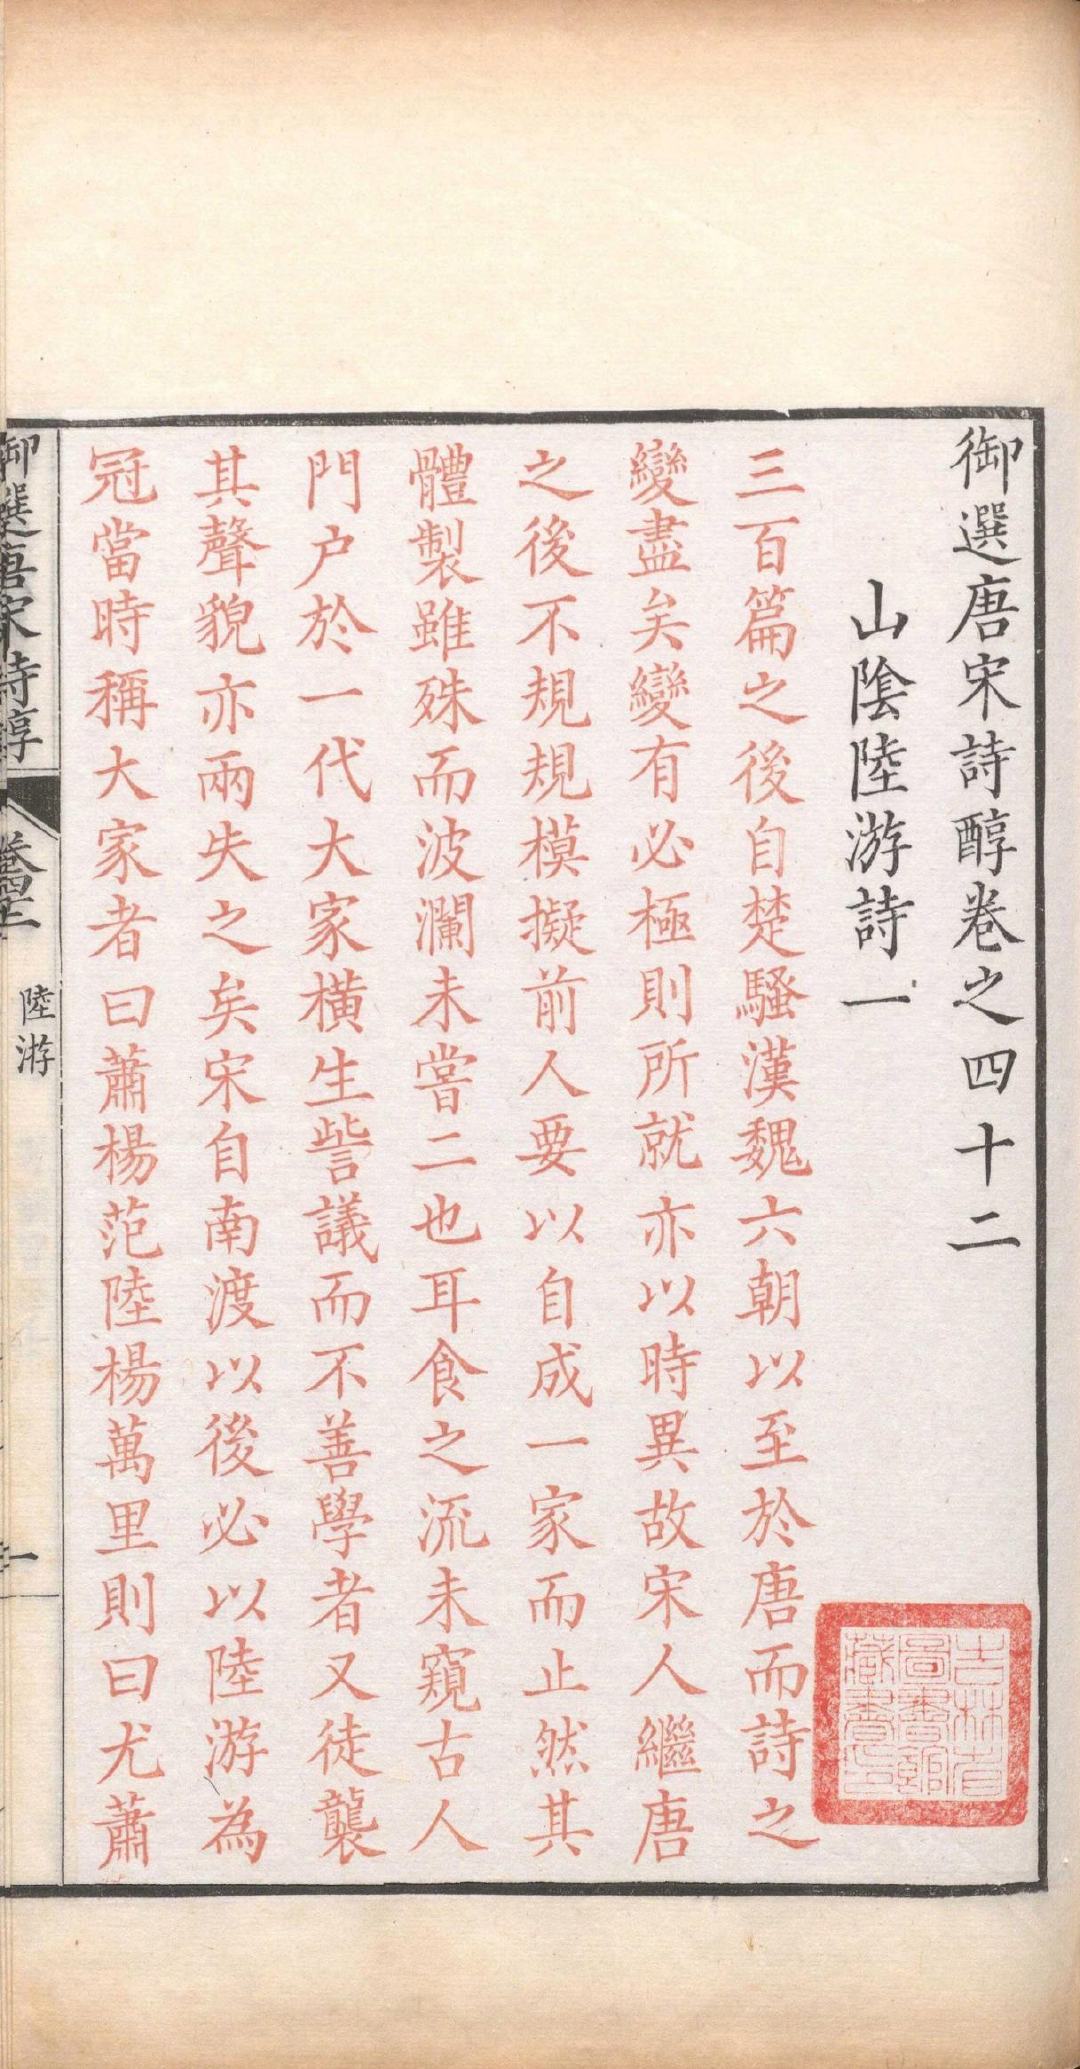 御選唐宋詩醇卷之四十二
山陰陸游詩一
三百篇之後自楚騷漢魏六朝以至於唐而詩之
變盡矣變有必極則所就亦以時異故宋人繼唐
之後不規規模擬前人要以自成一家而止然其
體製雖殊而波瀾未嘗二也耳食之流未窺古人
門户於一代大家橫生訾議而不善學者又徒襲
其聲貌亦兩失之矣宋自南渡以後必以陸游為
冠當時稱大家者曰蕭楊范陸楊萬里則曰尤蕭
御選唐宋詩醇
卷四十二
陸游
一
吉林省
圖書館
藏書印